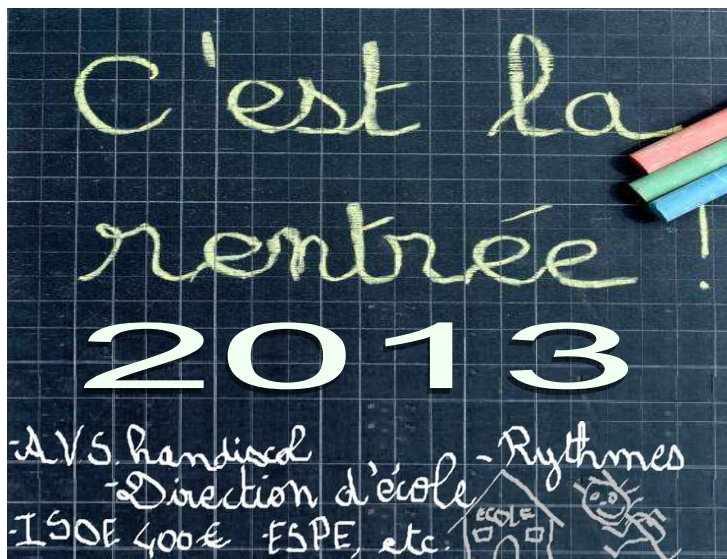 C'est la
rentrée !
2013
-A.V.S. handiscol -Rythmes
-Direction d'école
-ISOE 400€ ESPE, etc.
ECOLE